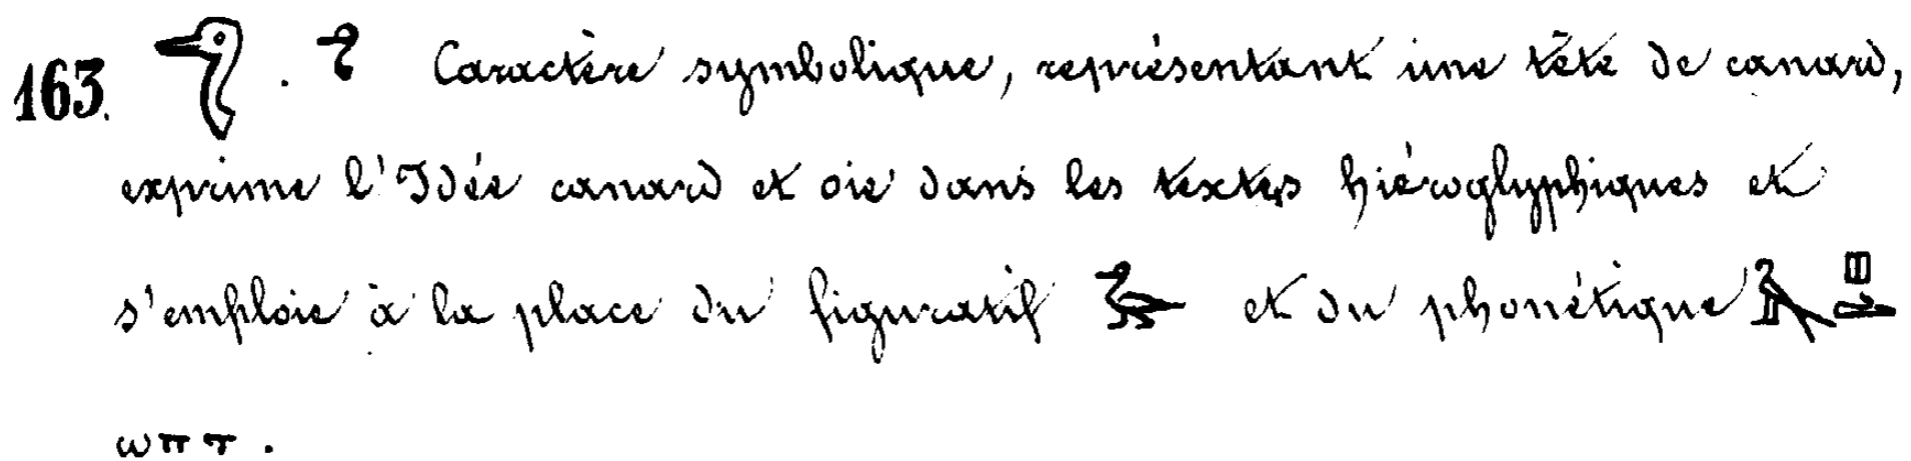 163. 𓅿 . Caractère symbolique, représentant une tête de canard,
exprime l'Idée canard et oie dans les textes hiéroglyphiques et
s'emploie à la place du figuratif et du phonétique
ωπτ .